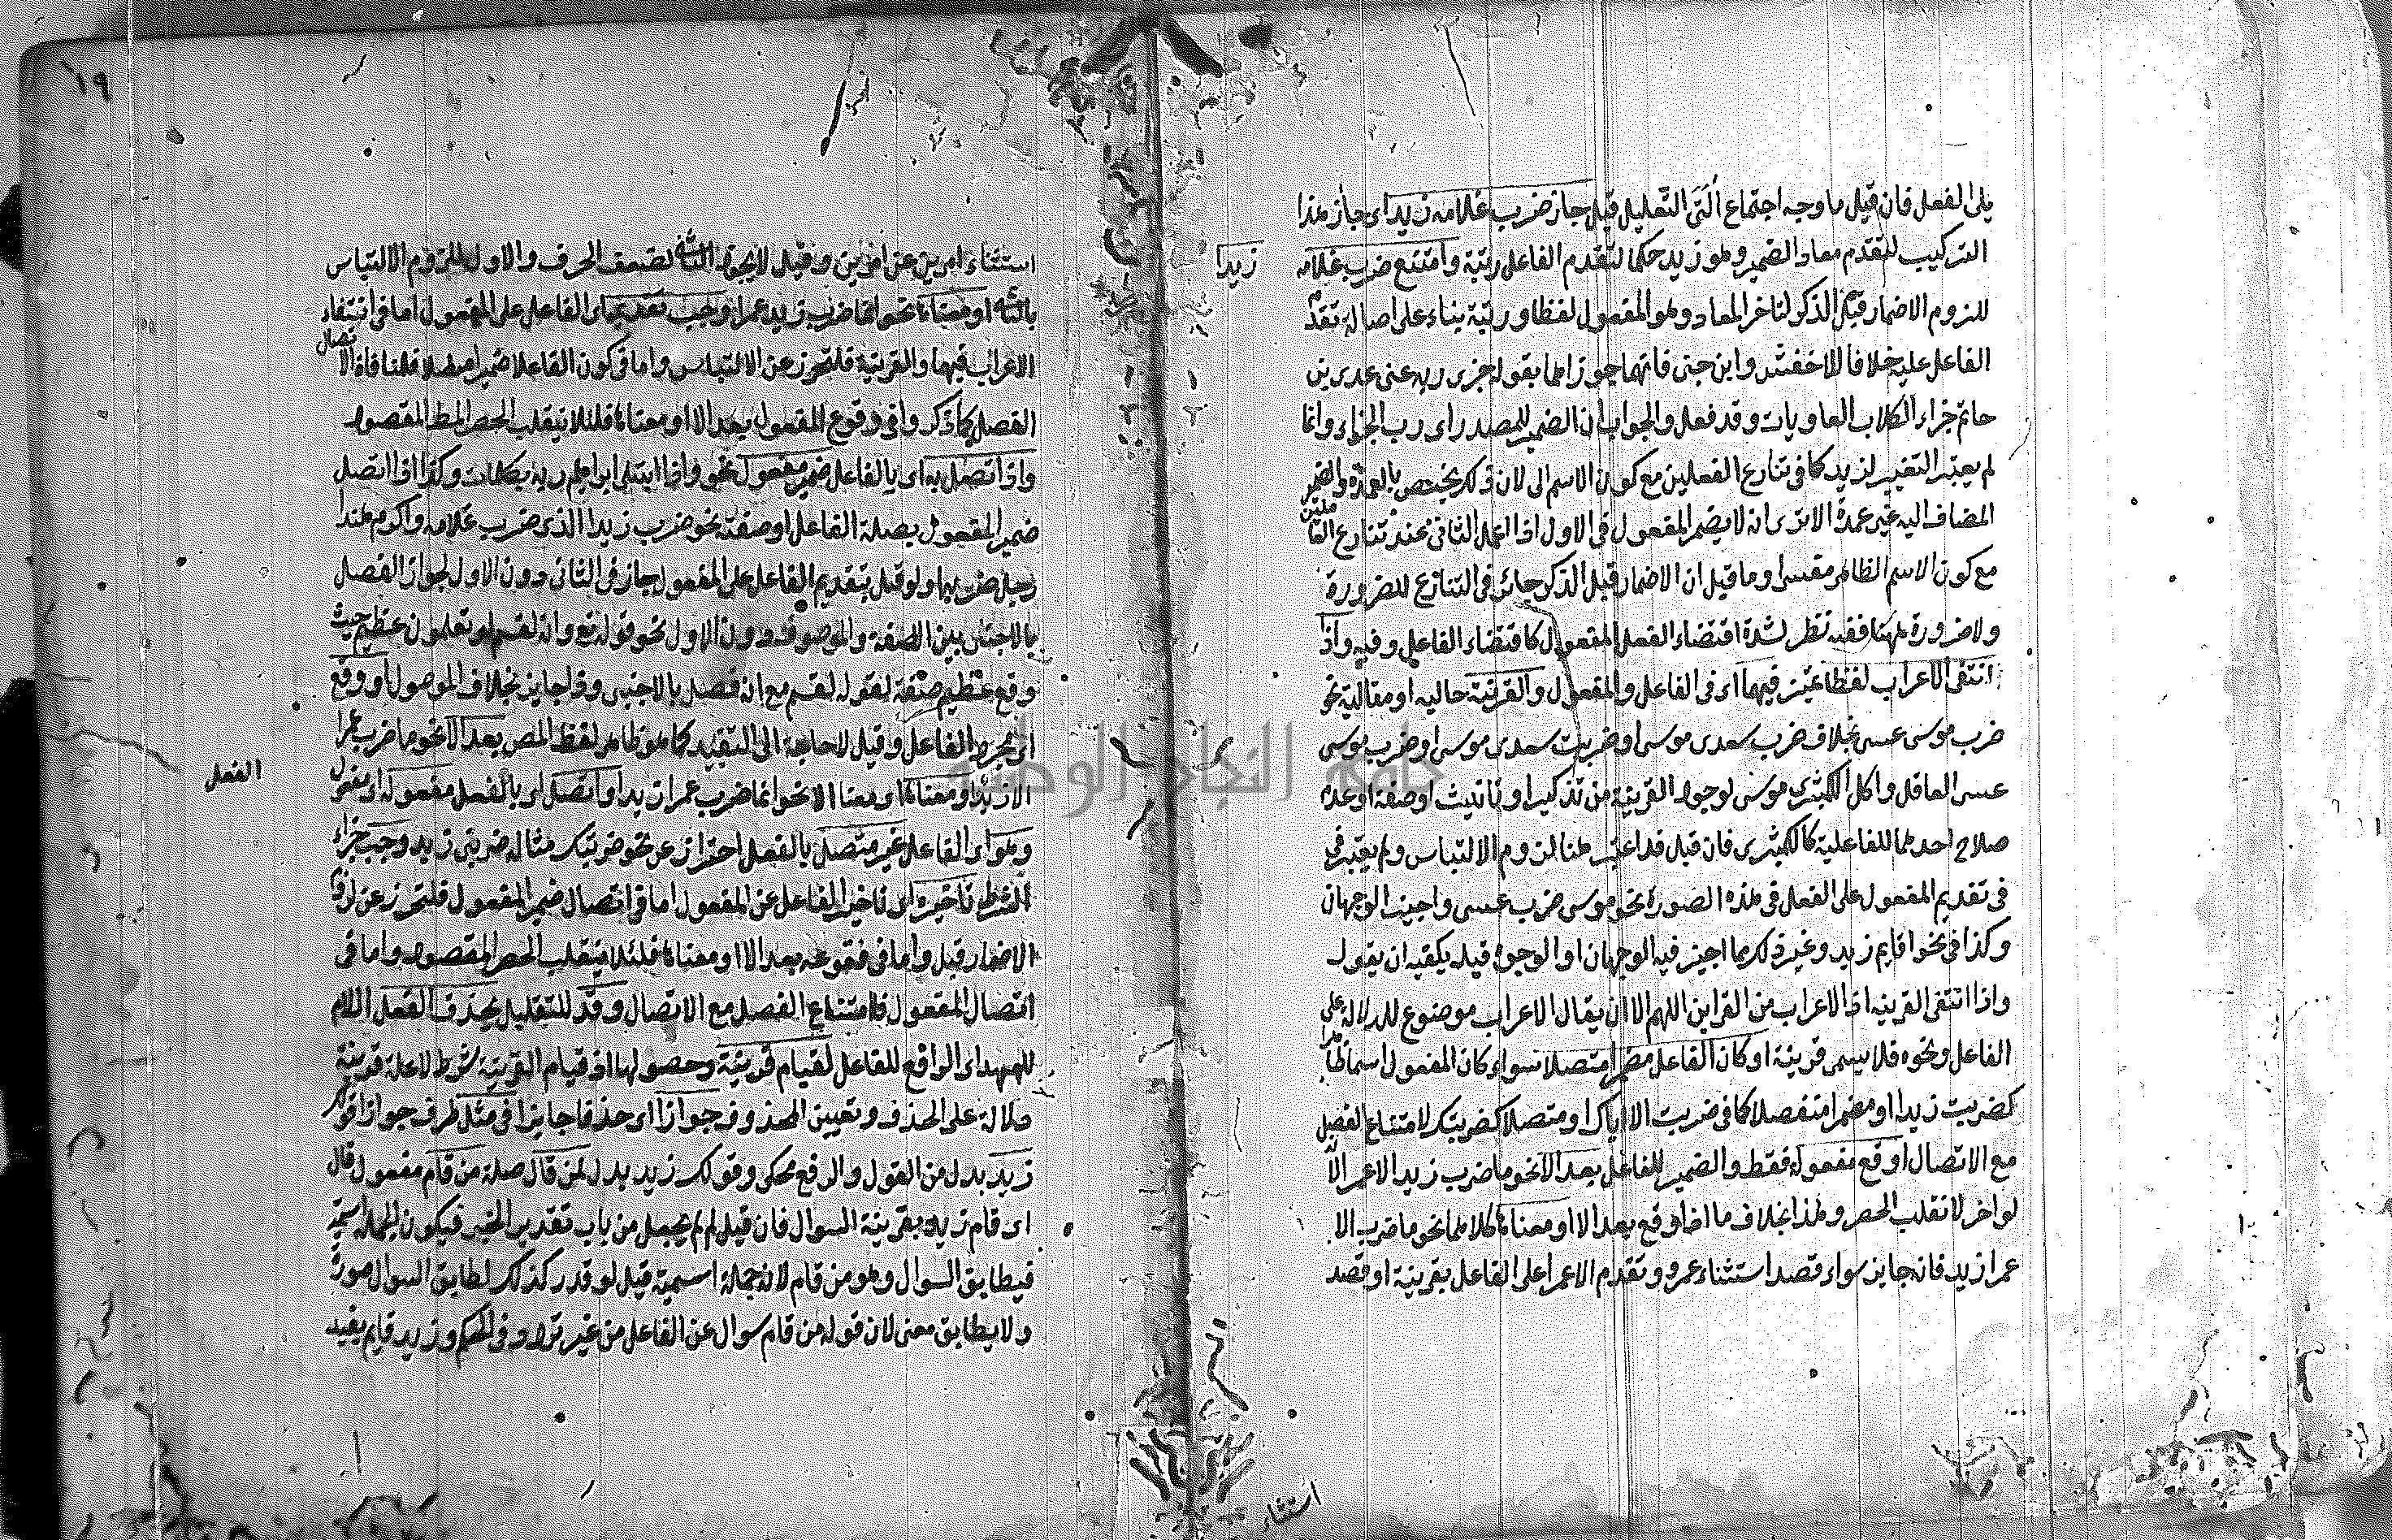 يلى الفعل فان قيل ما وجه اجتماع التى التعليل قيل جاز ضرب غلامه زيد اى جاز هذا
التركيب لتقدم معاد الضمير وهو زيد حكما لتقدم الفاعل رتبة وامتنع ضرب غلامه
زيدا
للزوم الاضمار قبل الذكر لتاخر المعاد وهو المفعول لفظا ورتبة بناء على اصالة تقدم
الفاعل عليه خلافا للاخفش وابن جنى فانهما جوزاهما بقوله جزى ربه عنى عدى بن
حاتم جزاء الكلاب العاويات وقد فعل والجواب ان الضمير للمصدر اى رب الجزاء وانما
لم يعتبر التغيير لزيد كما فى تنازع الفعلين مع كون الاسم الى لان ذلك يختص بالعمدة والضمير
المضاف اليه غير عمدة الا ترى انه لا يضمر المفعول فى الاول اذا اعمل الثانى عند تنازع الفاعلين
مع كون الاسم الظاهر مفسرا وما قيل ان الاضمار قبل الذكر جائز فى التنازع للضرورة
ولا ضرورة ههنا ففيه نظر لشدة اقتضاء الفعل المفعول كاقتضاء الفاعل وفيه واذا
انتفى الاعراب لفظا فيهما اى فى الفاعل والمفعول والقرينة حاليه او مقالية نحو
ضرب موسى عيسى بخلاف ضرب سعدى موسى او ضربت سعدى موسى او ضرب موسى
عيسى العاقل واكل الكمثرى موسى لوجود القرينة من تذكير او تانيث او صفة او عدم
صلاح احدهما للفاعلية كالكمثرى فان قيل قد اعتبر هنا لزوم الالتباس ولم يعتبر فى
فى تقديم المفعول على الفعل فى هذه الصورة نحو موسى ضرب عيسى واجيز الوجهان
وكذا فى نحو اقايم زيد وغير ذلك مما اجيز فيه الوجهان او الوجوه قيل يكفيه ان يقول
واذا انتفى القرينه اذ الاعراب من القراين اللهم الا ان يقال الاعراب موضوع للدلالة على
الفاعل ونحوه فلا يسمى قرينة او كان الفاعل مضمرا متصلا سواء كان المفعول اسما ظاهرا
كضربت زيدا او مضمرا منفصلا كما فى ضربت الا اياك او متصلا كضربتك لامتناع الفصل
مع الاتصال او وقع مفعوله فقط والضمير للفاعل بعد الا نحو ما ضرب زيد الا عمرا
لو اخر لانقلب الحصر وهذا بخلاف ما اذا وقع بعد الا او معناها كلاهما نحو ما ضرب الا
عمرا زيد فانه جايز سواء قصد استثناء عمرو وتقدم الا عمرا على الفاعل بقرينة او قصد
استثناء
١٩
استثناء امرين عن امرين وقيل لا يجوز الثانى لضعف الحرف والاول للزوم الالتباس
بالثانى او معناها نحو انما ضرب زيد عمرا وجب تقديمه اى الفاعل على المفعول اما فى انتفاء
الاعراب فيهما والقرينة فللتحرز عن الالتباس واما فى كون الفاعل ضميرا متصلا فلمنافاة الاتصال
الفصل كما ذكر واما فى وقوع المفعول بعد الا او معناها فلئلا ينقلب الحصر المقصود
واذا اتصل به اى بالفاعل ضمير مفعول نحو واذ ابتلى ابراهيم ربه بكلمات وكذا اذا اتصل
ضمير المفعول بصلة الفاعل او صفته نحو ضرب زيدا الذى ضرب غلامه واكرم هندا
رجل ضربها ولو قيل بتقديم الفاعل على المفعول جاز فى الثانى دون الاول لجواز الفصل
بالاجنبى بين الصفة والموصوف دون الاول نحو قوله تع وانه لقسم لو تعلمون عظيم حيث
وقع عظيم صفة لقوله لقسم مع انه فصل بالاجنبى وذا جايز بخلاف الموصول او وقع
اى مجرد الفاعل وقيل لا حاجة الى التقييد كما هو ظاهر لفظ المص بعد الا نحو ما ضرب عمرا
الا زيد او معناها او معنا الا نحو انما ضرب عمرا زيد او اتصل اى بالفعل مفعوله اى مفعول
الفعل
وهو اى الفاعل غير متصل بالفعل احتراز عن نحو ضربتك مثاله ضربنى زيد وجب جزاء
الشرط تاخيره اى تاخير الفاعل عن المفعول اما فى اتصال ضمير المفعول فللتحرز عن لزوم
الاضمار قبل واما فى وقوعه بعد الا او معناها فلئلا ينقلب الحصر المقصود واما فى
اتصال المفعول فلامتناع الفصل مع الاتصال وقد للتقليل يحذف الفعل اللام
للعهد اى الرافع للفاعل لقيام قرينة وحصولها اذ قيام القرينة شرط لا علة قرينة
دلالة على الحذف وتعيين المحذوف جوازا اى حذفا جايزا فى مثل ظرف جوازا قولك
زيد بدل من القول والرفع محكى وقولك زيد بدل لمن قال صلة من قام مفعول قال
اى قام زيد بقرينة السوال فان قيل لم لم يجعل من باب تقدير الخبر فيكون الجملة اسمية
فيطابق السوال وهو من قام لانه جملة اسمية قيل لو قدر كذلك لطابق السوال صورة
ولا يطابق معنى لان قوله من قام سوال عن الفاعل من غير تردد فى الحكم وزيد قايم يفيد